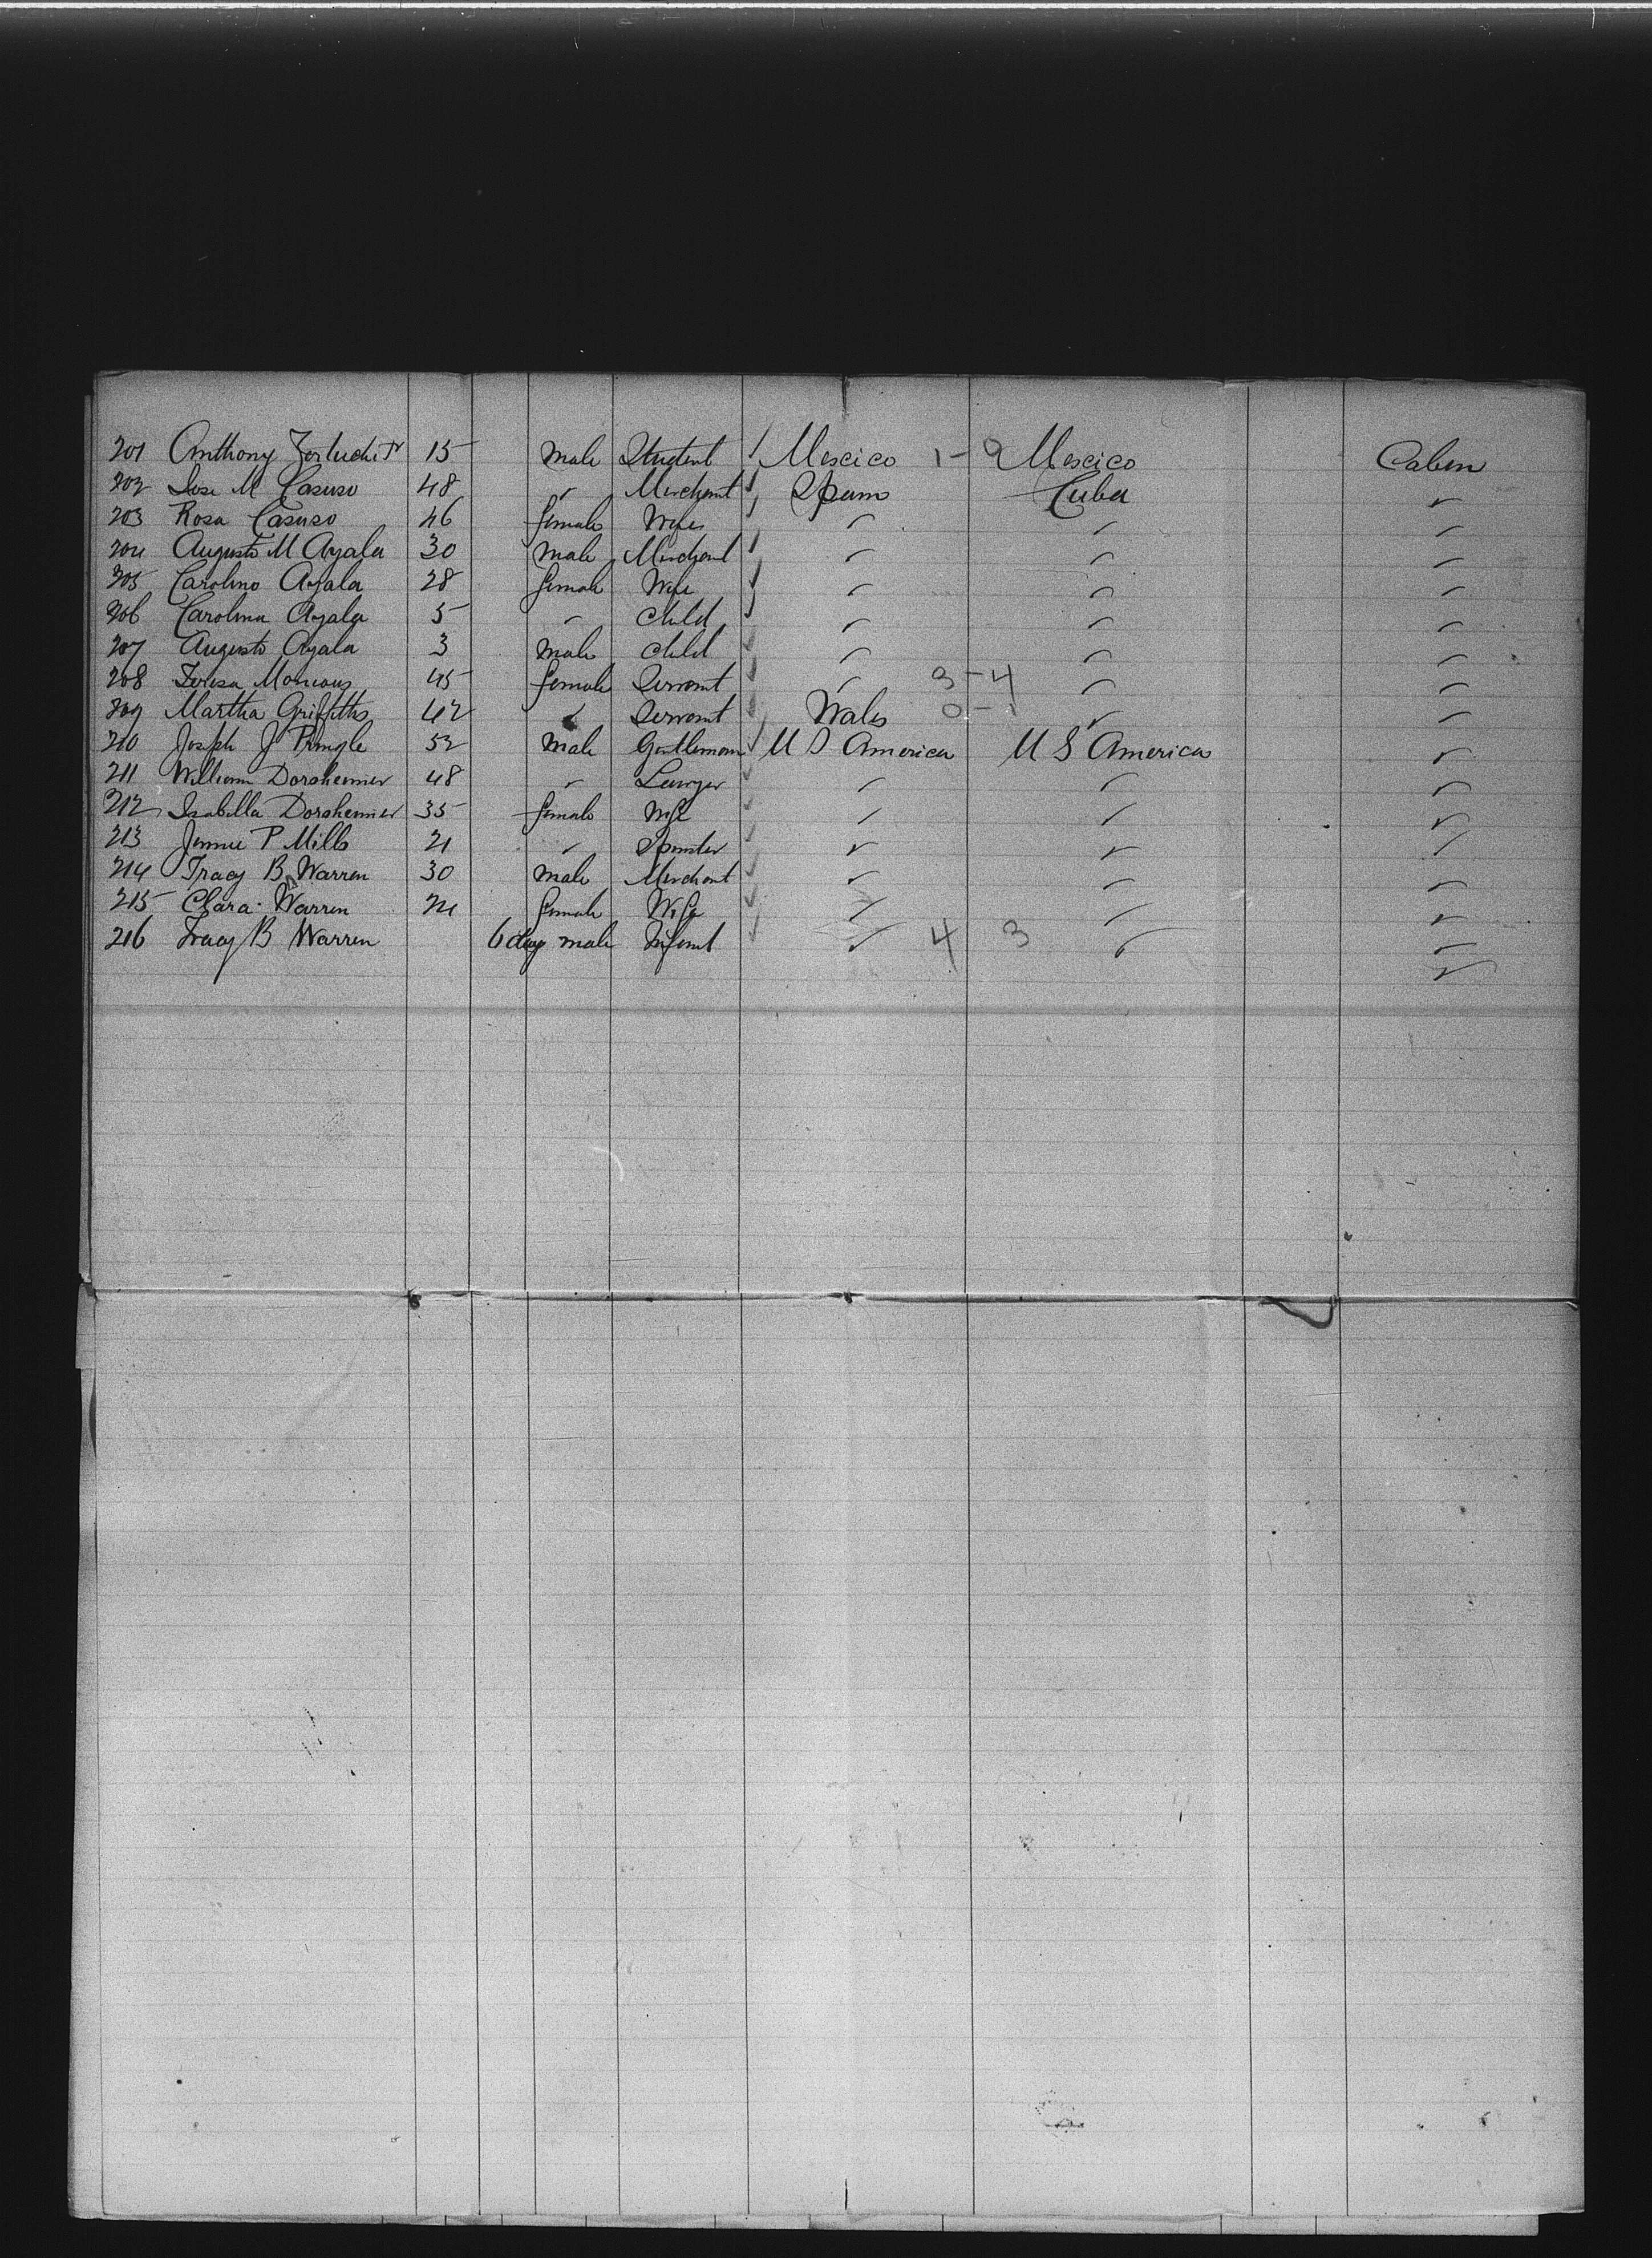 201 Anthony 15 Male Student Mexico 1-0 Mexico Cabin
202 Jose M Casuso 48 " Merchant Spain Cuba "
203 Rosa Casuso 46 female Wife " " "
204 Augusto M Ayala 30 Male Merchant " " "
205 Carolino Ayala 28 female Wife " " "
206 Carolina Ayala 5 " Child " " "
207 Augusto Ayala 3 Male Child " " "
208 Teresa 45 female Servant " 3-4 " "
209 Martha Griffiths 42 " Servant Wales 0-1 " "
210 Joseph J Pringle 52 Male Gentleman U S America U S America "
211 William Dorsheimer 48 " Lawyer " " "
212 Isabella Dorsheimer 35 female Wife " " "
213 Jennie P Mills 21 " Spinster " " "
214 Tracy B Warren 30 Male Merchant " " "
215 Clara Warren 24 female Wife " " "
216 Tracy B Warren 6 days male Infant " 4 3 " "